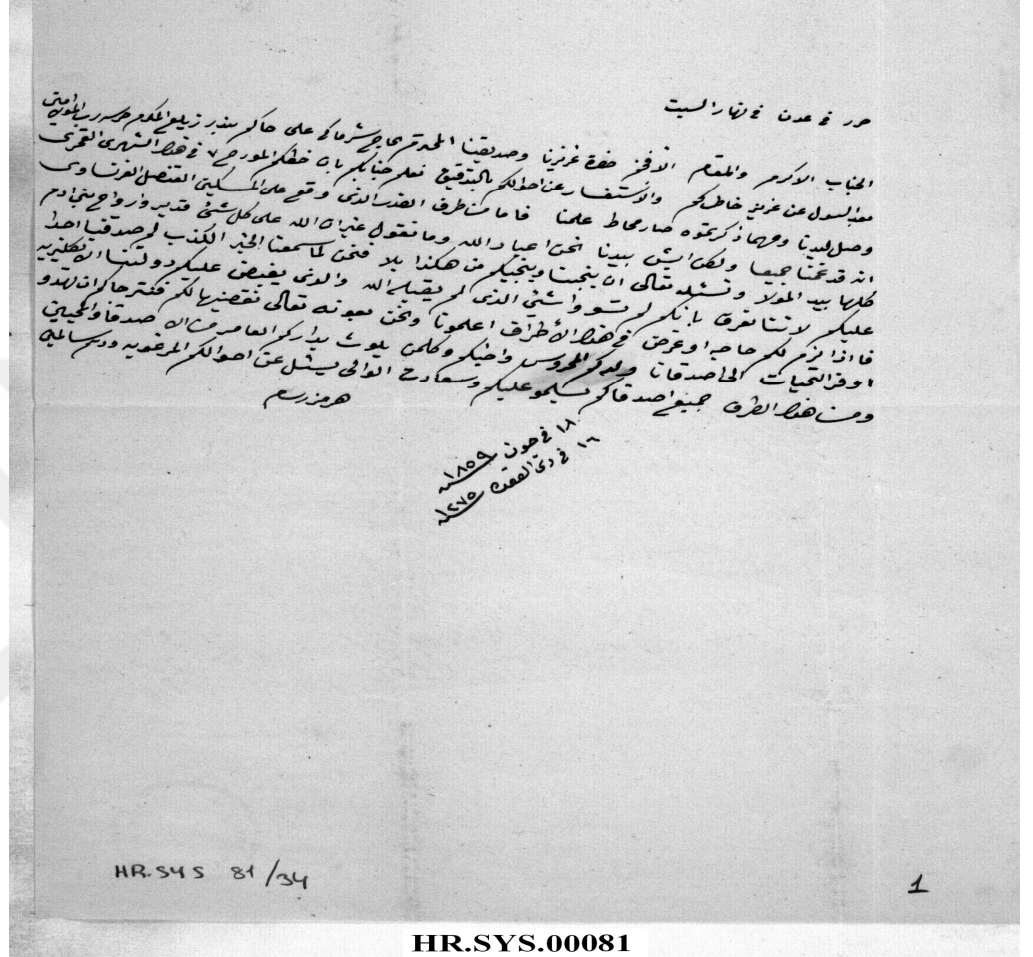 حرر في عدن في نهار السبت
الجناب الاكرم والمقام الافخم حضرة عزيزنا وصديقنا المحترم حاج شرماكي علي حاكم بندر زيلع المكرم حرسه رب المولى امين
بعد السول عن عزيز خاطركم والاستفسار عن احوالكم بالتدقيق نعلم جنابكم بان خطكم المورخ ٧ في هذا الشهرى القمرى
وصل ليدنا ومهما ذكرتموه صار محاط علمنا فاما من طرف الغدر الذي وقع على المسكين القنصل الفرنساوى
انه قد غمنا جميعا ولكن ايش بيدنا نحن اعباد الله وما نقول غير ان الله على كل شئ قدير وارواح بني ادم
كلها بيد المولا ونسئله تعالى ان ينجينا وينجيكم من هكذا بلا فنحن لما سمعنا الخبر الكذب لم صدقنا احدا
عليكم لاننا نعرف بانكم لم تسوو اشئ الذي لم يقبله الله والذي يغيض عليكم دولتنا الانكليزيه
فااذا لزم لكم حاجه او غرض في هذا الأطراف اعلمونا ونحن بعونه تعالى نقضيها لكم فنترجاكم ان تهدو
اوفر التحيات الى اصدقانا ولدكم المحروس واخيكم وكلمن يلوث بداركم العامر من الاصدقا والمحبين
ومن هذا الطرف جميع اصدقاكم يسلمو عليكم وسعادة الوالى يسئل عن احوالكم المرغوبه ودم سالمين
هرمز رسام
١٨ في جون سنة ١٨٥٩
١٦ في ذي القعده سنة ١٢٧٥
HR.SYS 81/34
1
HR.SYS.00081